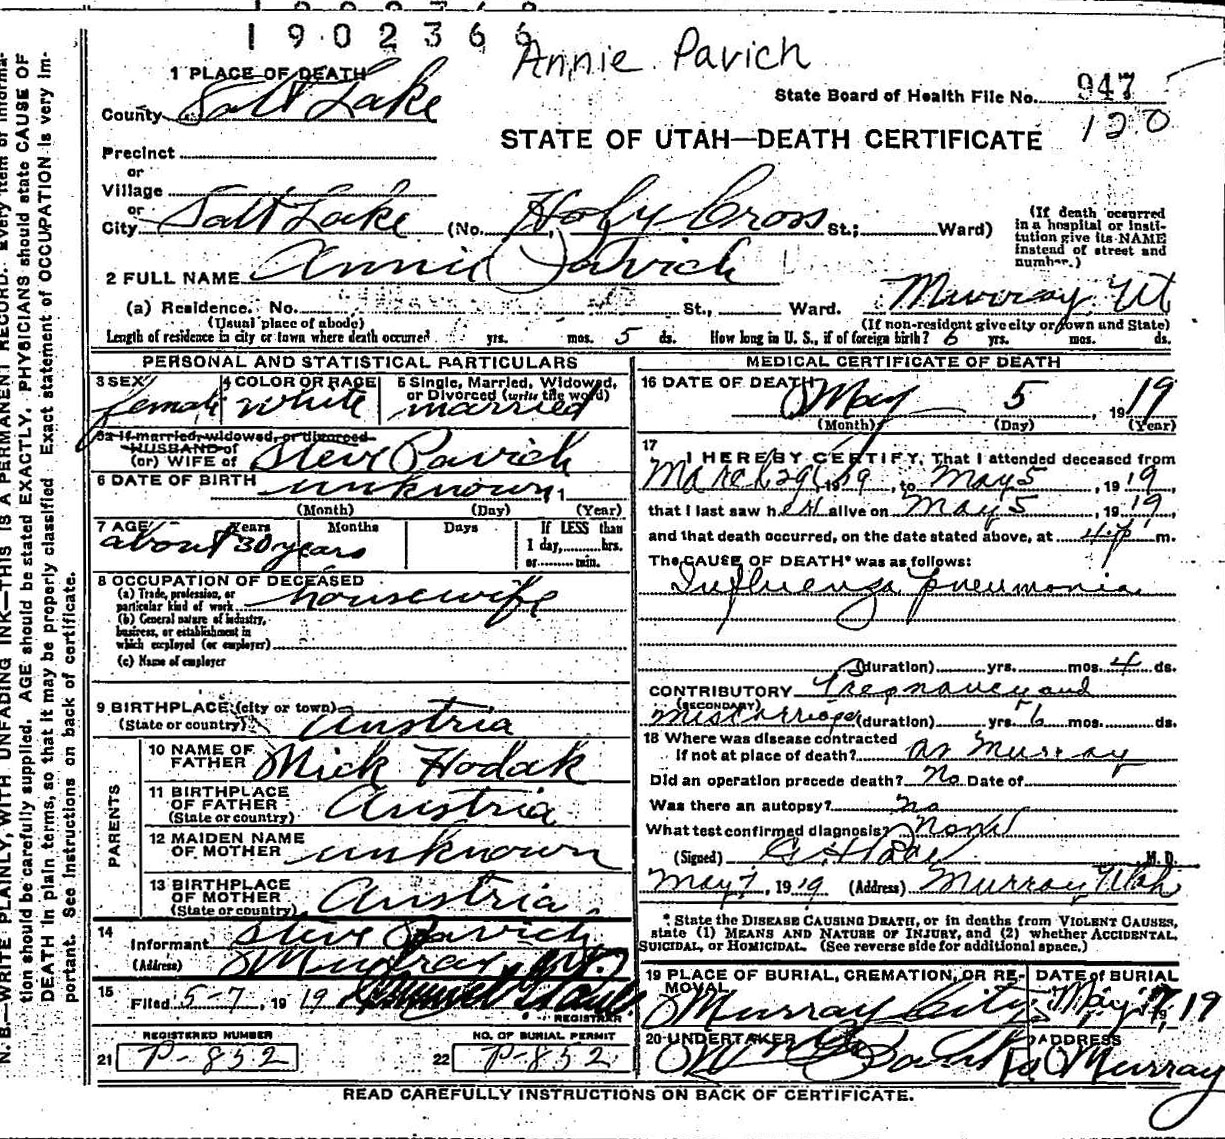 1902366
Annie Pavich
1 PLACE OF DEATH
County Salt Lake
State Board of Health File No. 947
120
STATE OF UTAH—DEATH CERTIFICATE
Precinct
or
Village
or
City Salt Lake (No. Holy Cross St.; Ward)
(If death occurred in a hospital or institution give its NAME instead of street and number.)
2 FULL NAME Annie Pavich
(a) Residence. No. St., Ward. Murray Ut
(Usual place of abode) (If non-resident give city or town and State)
Length of residence in city or town where death occurred yrs. mos. 5 ds. How long in U. S., if of foreign birth? 6 yrs. mos. ds.
PERSONAL AND STATISTICAL PARTICULARS
3 SEX female
4 COLOR OR RACE white
5 Single, Married, Widowed, or Divorced (write the word) married
5a If married, widowed, or divorced
HUSBAND of
(or) WIFE of Steve Pavich
6 DATE OF BIRTH unknown, 1
(Month) (Day) (Year)
7 AGE Years Months Days If LESS than
about 30 years 1 day, hrs.
or min.
8 OCCUPATION OF DECEASED
(a) Trade, profession, or particular kind of work housewife
(b) General nature of industry, business, or establishment in which employed (or employer)
(c) Name of employer
9 BIRTHPLACE (city or town)
(State or country) Austria
PARENTS
10 NAME OF FATHER Mick Hodak
11 BIRTHPLACE OF FATHER (State or country) Austria
12 MAIDEN NAME OF MOTHER unknown
13 BIRTHPLACE OF MOTHER (State or country) Austria
14 Informant Steve Pavich
(Address) Murray Ut.
15 Filed 5-7, 1919
REGISTRAR
REGISTERED NUMBER NO. OF BURIAL PERMIT
21 P-852 22 P-852
MEDICAL CERTIFICATE OF DEATH
16 DATE OF DEATH May 5, 1919
(Month) (Day) (Year)
17
I HEREBY CERTIFY, That I attended deceased from
March 29, 1919, to May 5, 1919,
that I last saw her alive on May 5, 1919,
and that death occurred, on the date stated above, at 4 p m.
The CAUSE OF DEATH* was as follows:
Influenza Pneumonia
(duration) yrs. mos. 4 ds.
CONTRIBUTORY Pregnancy and
(SECONDARY)
miscarriage (duration) yrs. 6 mos. ds.
18 Where was disease contracted
if not at place of death? at Murray
Did an operation precede death? No Date of
Was there an autopsy? no
What test confirmed diagnosis? None
(Signed) M. D.
May 7, 1919 (Address) Murray Utah
* State the DISEASE CAUSING DEATH, or in deaths from VIOLENT CAUSES,
state (1) MEANS AND NATURE OF INJURY, and (2) whether ACCIDENTAL,
SUICIDAL, or HOMICIDAL. (See reverse side for additional space.)
19 PLACE OF BURIAL, CREMATION, OR REMOVAL DATE of BURIAL
Murray City May 7 19
20 UNDERTAKER ADDRESS
Murray
READ CAREFULLY INSTRUCTIONS ON BACK OF CERTIFICATE.
N. B.—WRITE PLAINLY, WITH UNFADING INK—THIS IS A PERMANENT RECORD. Every item of informa-
tion should be carefully supplied. AGE should be stated EXACTLY. PHYSICIANS should state CAUSE OF
DEATH in plain terms, so that it may be properly classified. Exact statement of OCCUPATION is very im-
portant. See instructions on back of certificate.